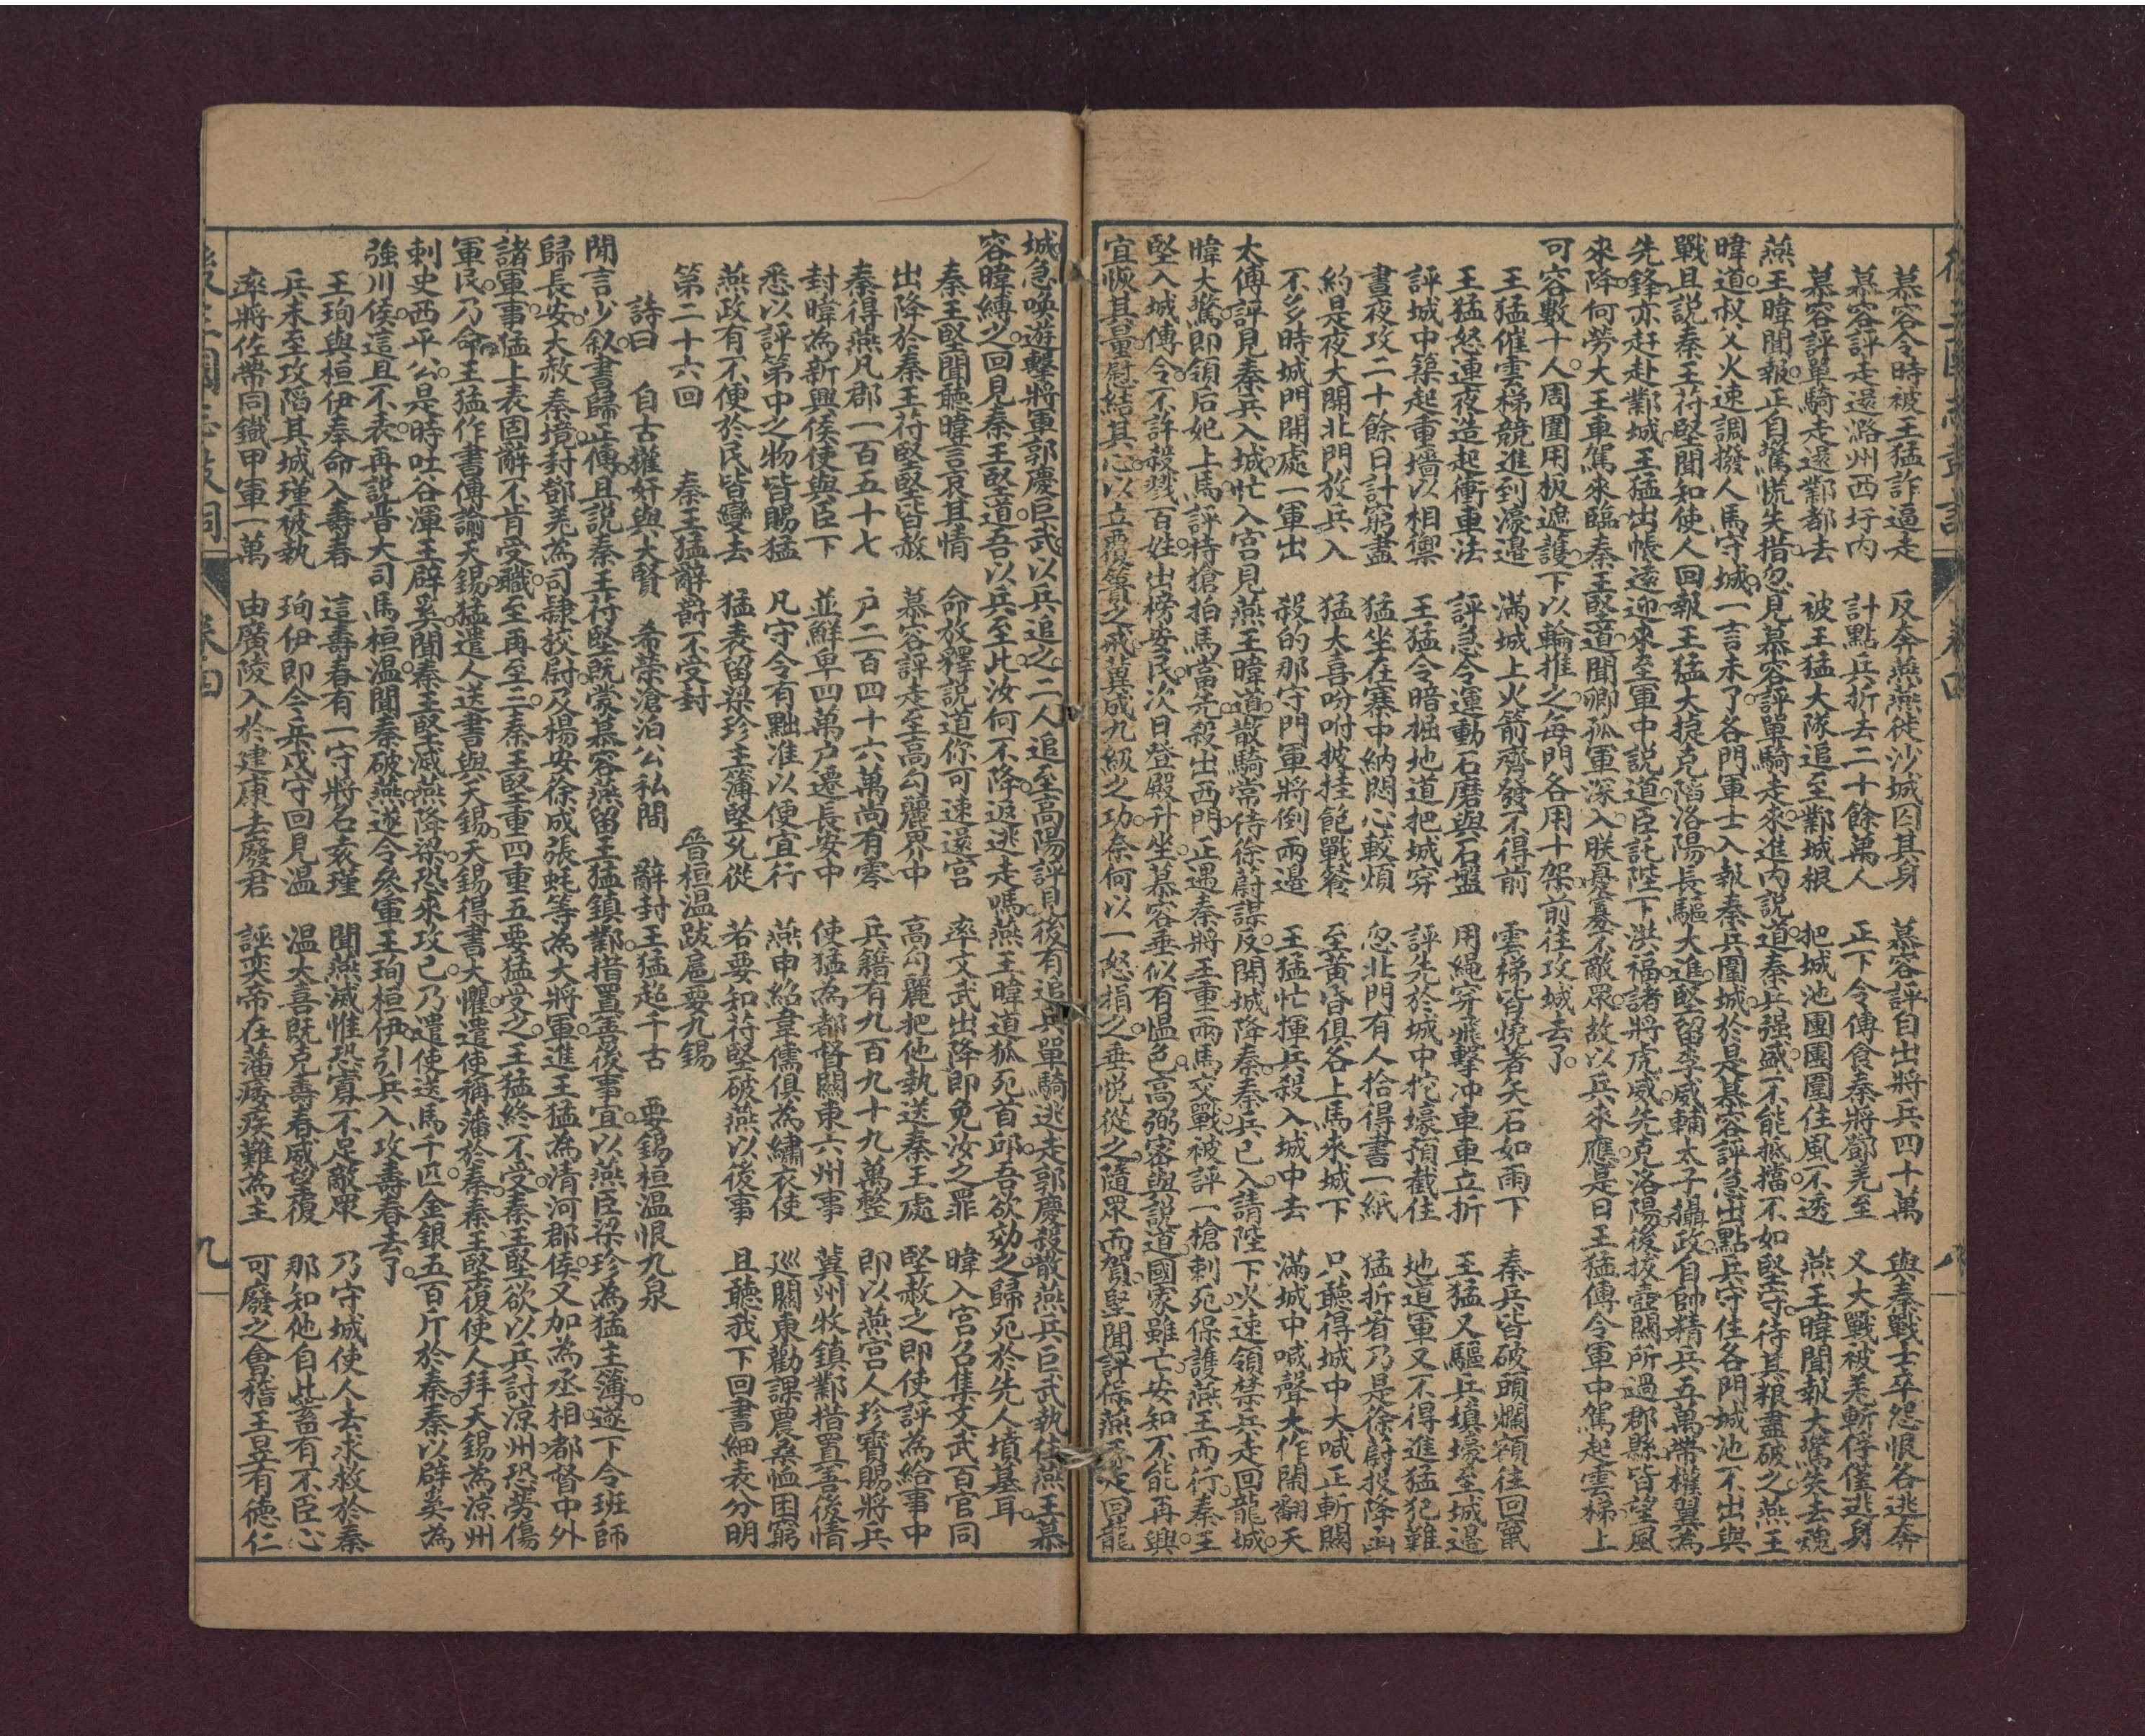 慕容令時被王猛詐逼走　反奔燕燕徙沙城囚其身　慕容評自出將兵四十萬　與秦戰士卒怨恨各逃奔
慕容評走還潞州西圩內　計點兵折去二十餘萬人　正下令傳食秦將鄧羌至　又大戰被羌斬俘僅逃身
慕容評單騎走還鄴都去　被王猛大隊追至鄴城根　把城池團團圍住風不透　燕王暐聞報大驚失去魂
燕王暐聞報正自驚慌失措忽見慕容評單騎走來進內說道秦兵强盛不能抵擋不如堅守待其粮盡破之燕王
暐道叔父火速調撥人馬守城一言未了各門軍士入報秦兵圍城於是慕容評急出點兵守住各門城池不出與
戰且說秦王苻堅聞知使人回報王猛大捷克陷洛陽長驅大進堅留李威輔太子攝政自帥精兵五萬帶權翼為
先鋒亦赶赴鄴城王猛出帳遠迎來至軍中說道臣託陛下洪福諸將虎威先克洛陽後拔壺關所過郡縣皆望風
來降何勞大王車駕來臨秦王堅道聞卿孤軍深入朕憂寡不敵眾故以兵來應是日王猛傳令軍中駕起雲梯上
可容數十人周圍用板遮護下以輪推之每門各用十架前往攻城去了
王猛催雲梯競進到濠邊　滿城上火箭齊發不得前　雲梯皆燒著矢石如雨下　秦兵皆破頭爛額往回竄
王猛怒連夜造起衝車法　評急令運動石磨與石盤　用繩穿飛擊冲車車立折　王猛又驅兵填壕至城邊
評城中築起重墻以相禦　王猛令暗掘地道把城穿　評先於城中挖壕預截住　地道軍又不得進猛犯難
晝夜攻二十餘日計窮盡　猛坐在寨中納悶心較煩　忽北門有人拾得書一紙　猛拆看乃是徐蔚投降函
約是夜大開北門放兵入　猛大喜吩咐披挂飽戰餐　至黃昏俱各上馬來城下　只聽得城中大喊正斬關
不多時城門開處一軍出　殺的那守門軍將倒兩邊　王猛忙揮兵殺入城中去　滿城中喊聲大作鬧翻天
太傅評見秦兵入城忙入宮見燕王暐道散騎常侍徐蔚謀反開城降秦秦兵已入請陛下火速領禁兵走回龍城
暐大驚即領后妃上馬評持槍拍馬當先殺出西門正遇秦將王重兩馬交戰被評一槍刺死保護燕王而行秦王
堅入城傳令不許殺戮百姓出榜安民次日登殿升坐慕容垂似有慍色高弼密與說道國家雖亡安知不能再興
宜恢其量慰結其心以立覆簣之戒冀成九級之功奈何以一怒捐之垂悅從之隨眾而賀堅聞評保燕王走回龍
城急喚遊擊將軍郭慶巨武以兵追之二人追至高陽評見後有追兵單騎逃走郭慶殺散燕兵巨武執住燕王慕
容暐縛之回見秦王堅道吾以兵至此汝何不降返逃走嗎燕王暐道狐死首邱吾欲効之歸死於先人墳墓耳
秦王堅聞聽暐言哀其情　命放釋說道你可速還宮　率文武出降即免汝之罪　暐入宮召集文武百官同
出降於秦王苻堅堅皆赦　慕容評走至高勾麗界中　高勾麗把他執送秦王處　堅赦之即使評為給事中
秦得燕凡郡一百五十七　户二百四十六萬尚有零　兵籍有九百九十九萬整　即以燕宮人珍寶賜將兵
封暐為新興侯使與臣下　並鮮卑四萬户遷長安中　使猛為都督關東六州事　冀州牧鎮鄴措置善後情
悉以評第中之物皆賜猛　凡守令有黜准以便宜行　燕申紹韋儒俱為繡衣使　巡關東勸課農桑恤困窮
燕政有不便於民皆變去　猛表留梁珍主簿堅允從　若要知苻堅破燕以後事　且聽我下回書細表分明
第二十六回　　秦王猛辭爵不受封　　晉桓溫跋扈要九錫
詩曰　自古權奸與大賢　希榮滄泊公私間　辭封王猛超千古　要錫桓溫恨九泉
閒言少叙書歸正傳且說秦王苻堅既蒙慕容燕留王猛鎮鄴措置善後事宜以燕臣梁珍為猛主簿遂下令班師
歸長安大赦秦境封鄧羌為司隸校尉及楊安徐成張蚝等為大將軍進王猛為清河郡侯又加為丞相都督中外
諸軍事猛上表固辭不肯受職至再至三秦王堅重四重五要猛受之王猛終不受秦王堅欲以兵討凉州恐勞傷
軍民乃命王猛作書傳諭天錫猛遣人送書與天錫天錫得書大懼遣使稱藩於秦秦王堅復使人拜天錫為凉州
刺史西平公是時吐谷渾王辟奚聞秦王堅滅燕降梁恐來攻己乃遣使送馬千匹金銀五百斤於秦秦以辟奚為
強川侯這且不表再說晉大司馬桓溫聞秦破燕遂令參軍王珣桓伊引兵入攻壽春去了
王珣與桓伊奉命入壽春　這壽春有一守將名袁瑾　聞燕滅惟恐寡不足敵眾　乃守城使人去求救於秦
兵未至攻陷其城瑾被執　珣伊即令兵戍守回見溫　溫大喜既克壽春威望復　那知他自此蓄有不臣心
率將佐帶同鐵甲軍一萬　由廣陵入於建康去廢君　誣奕帝在藩痿疾難為主　可廢之會稽王昱有德仁
卷四
九